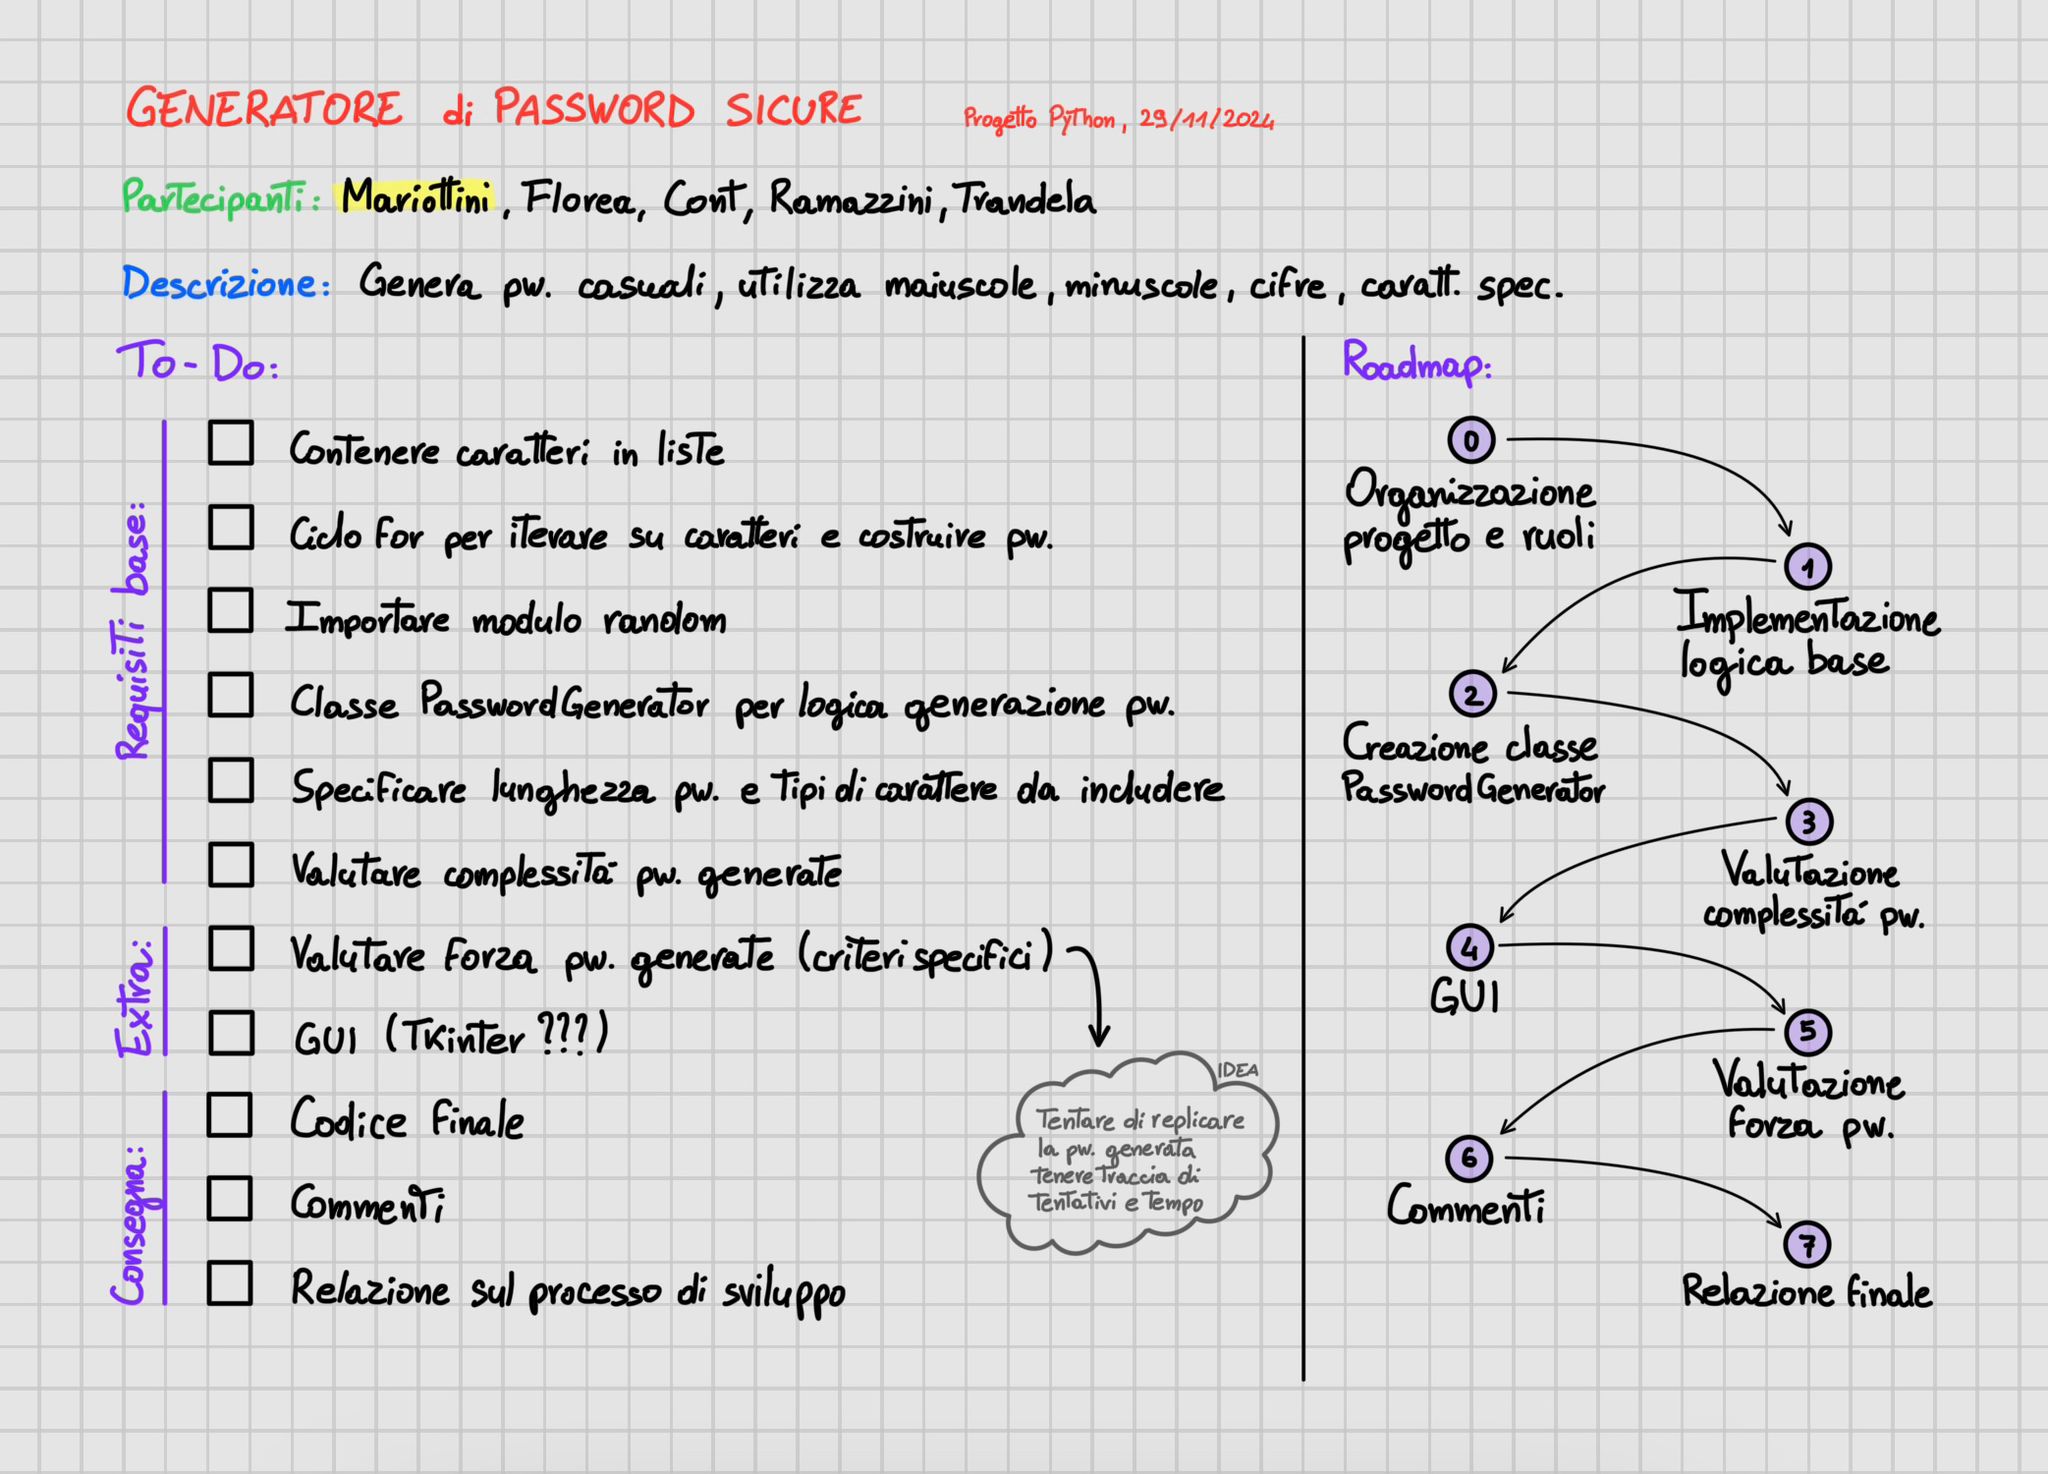 GENERATORE di PASSWORD SICURE
Progetto Python, 29/11/2024
Partecipanti: Mariottini, Florea, Cont, Ramazzini, Trandela
Descrizione: Genera pw. casuali, utilizza maiuscole, minuscole, cifre, caratt. spec.
To-Do:
Requisiti base:
Contenere caratteri in liste
Ciclo for per iterare su caratteri e costruire pw.
Importare modulo random
Classe PasswordGenerator per logica generazione pw.
Specificare lunghezza pw. e tipi di carattere da includere
Valutare complessità pw. generate
Extra:
Valutare forza pw. generate (criteri specifici)
GUI (TKinter ???)
IDEA
Tentare di replicare
la pw. generata
tenere traccia di
tentativi e tempo
Consegna:
Codice finale
Commenti
Relazione sul processo di sviluppo
Roadmap:
0
Organizzazione
progetto e ruoli
1
Implementazione
logica base
2
Creazione classe
PasswordGenerator
3
Valutazione
complessità pw.
4
GUI
5
Valutazione
forza pw.
6
Commenti
7
Relazione finale